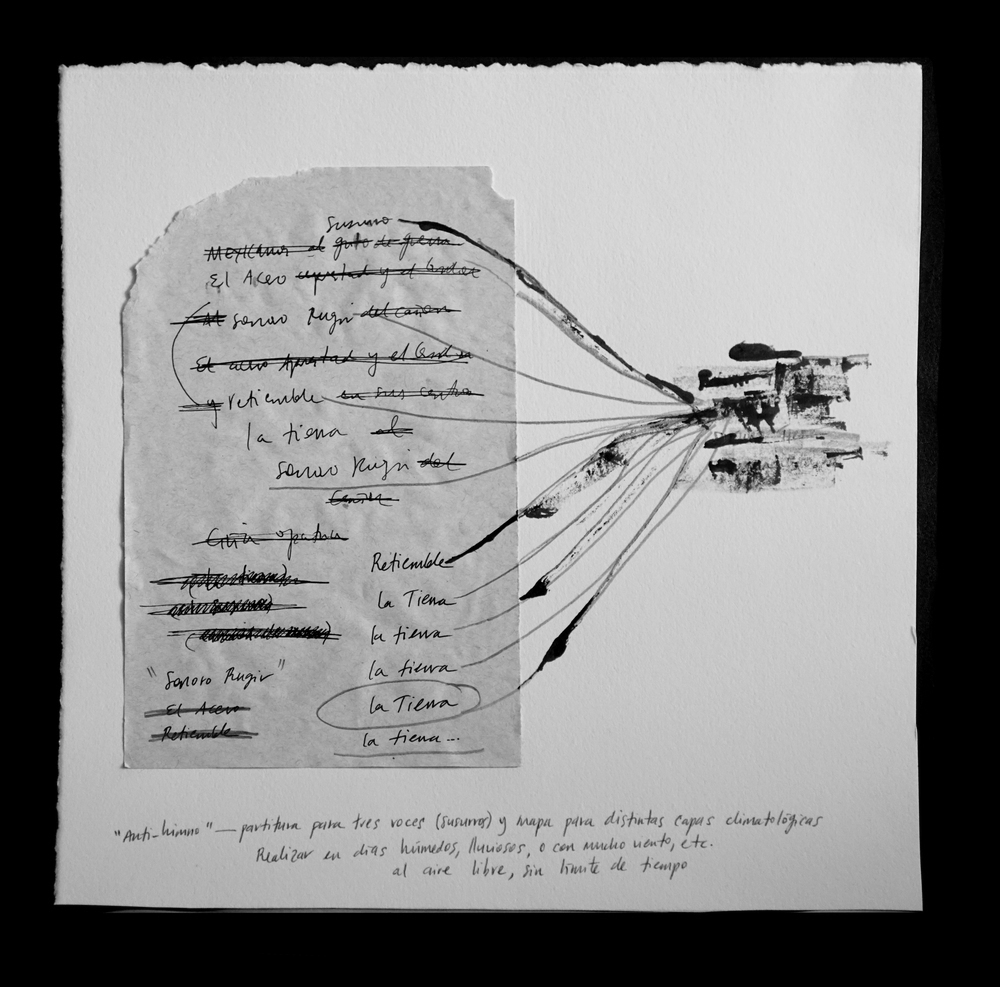 Susurro
Mexicanos al grito de guerra
El Acero aprestad y el bridón
Al sonoro Rugir del cañón
El acero aprestad y el bridón
y retiemble en sus centros
la tierra al
sonoro Rugir del
Cañón
Retiemble
la Tierra
la tierra
la tierra
la Tierra
la tierra...
"Sonoro Rugir"
El Acero
Retiemble
"Anti-himno" — partitura para tres voces (susurros) y mapa para distintas capas climatológicas
Realizar en días húmedos, lluviosos, o con mucho viento, etc.
al aire libre, sin límite de tiempo